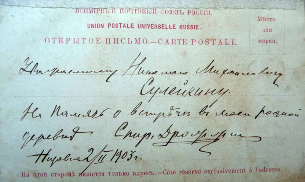 ВСЕМІРНЫЙ ПОЧТОВЫЙ СОЮЗЪ РОССІЯ.
UNION POSTALE UNIVERSELLE RUSSIE.
Мѣсто
для
марки.
ОТКРЫТОЕ ПИСЬМО.—CARTE POSTALE.
Николаю Михайловичу
На память о встрѣчѣ въ моей родной
деревнѣ Спир. Дрожжинъ
1903 г.
На этой сторонѣ пишется только адресъ.—Côté réservé exclusivement à l'adresse